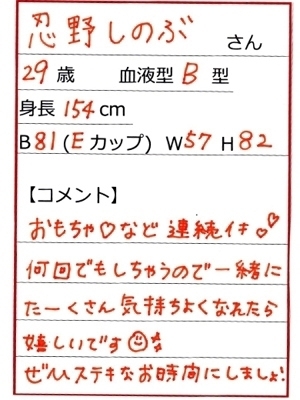 忍野しのぶ さん
29歳 血液型 B 型
身長 154cm
B81(Eカップ) W57 H82
【コメント】
おもちゃ♡など連続イキ♡♡
何回でもしちゃうので一緒に
たーくさん気持ちよくなれたら
嬉しいです☺
ぜひステキなお時間にしましょ!